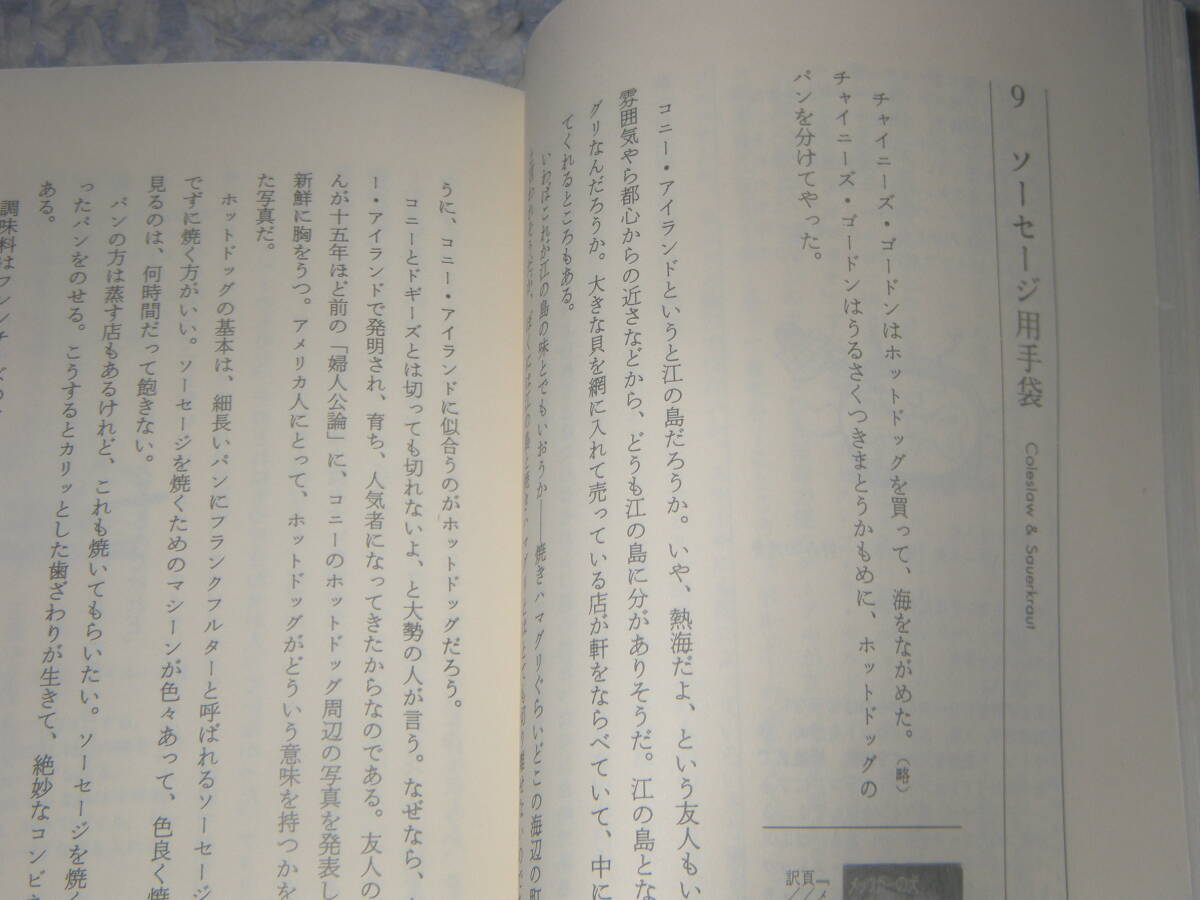 9 ソーセージ用手袋 Coleslaw & Sauerkraut
チャイニーズ・ゴードンはホットドッグを買って、海をながめた。(略)
チャイニーズ・ゴードンはうるさくつきまとうかもめに、ホットドッグの
パンを分けてやった。
コニー・アイランドというと江の島だろうか。いや、熱海だよ、という友人もい
雰囲気やら都心からの近さなどから、どうも江の島に分がありそうだ。江の島とな
グリなんだろうか。大きな貝を網に入れて売っている店が軒をならべていて、中に
てくれるところもある。
いわばこれが江の島の味とでもいおうか――焼きハマグリぐらいどこの海辺の町
うに、コニー・アイランドに似合うのがホットドッグだろう。
コニーとドギーズとは切っても切れないよ、と大勢の人が言う。なぜなら、
ー・アイランドで発明され、育ち、人気者になってきたからなのである。友人の
んが十五年ほど前の「婦人公論」に、コニーのホットドッグ周辺の写真を発表し
新鮮に胸をうつ。アメリカ人にとって、ホットドッグがどういう意味を持つかを
た写真だ。
ホットドッグの基本は、細長いパンにフランクフルターと呼ばれるソーセージ
でずに焼く方がいい。ソーセージを焼くためのマシーンが色々あって、色良く焼
見るのは、何時間だって飽きない。
パンの方は蒸す店もあるけれど、これも焼いてもらいたい。ソーセージを焼く
ったパンをのせる。こうするとカリッとした歯ざわりが生きて、絶妙なコンビネ
ある。
調味料はフレンチ